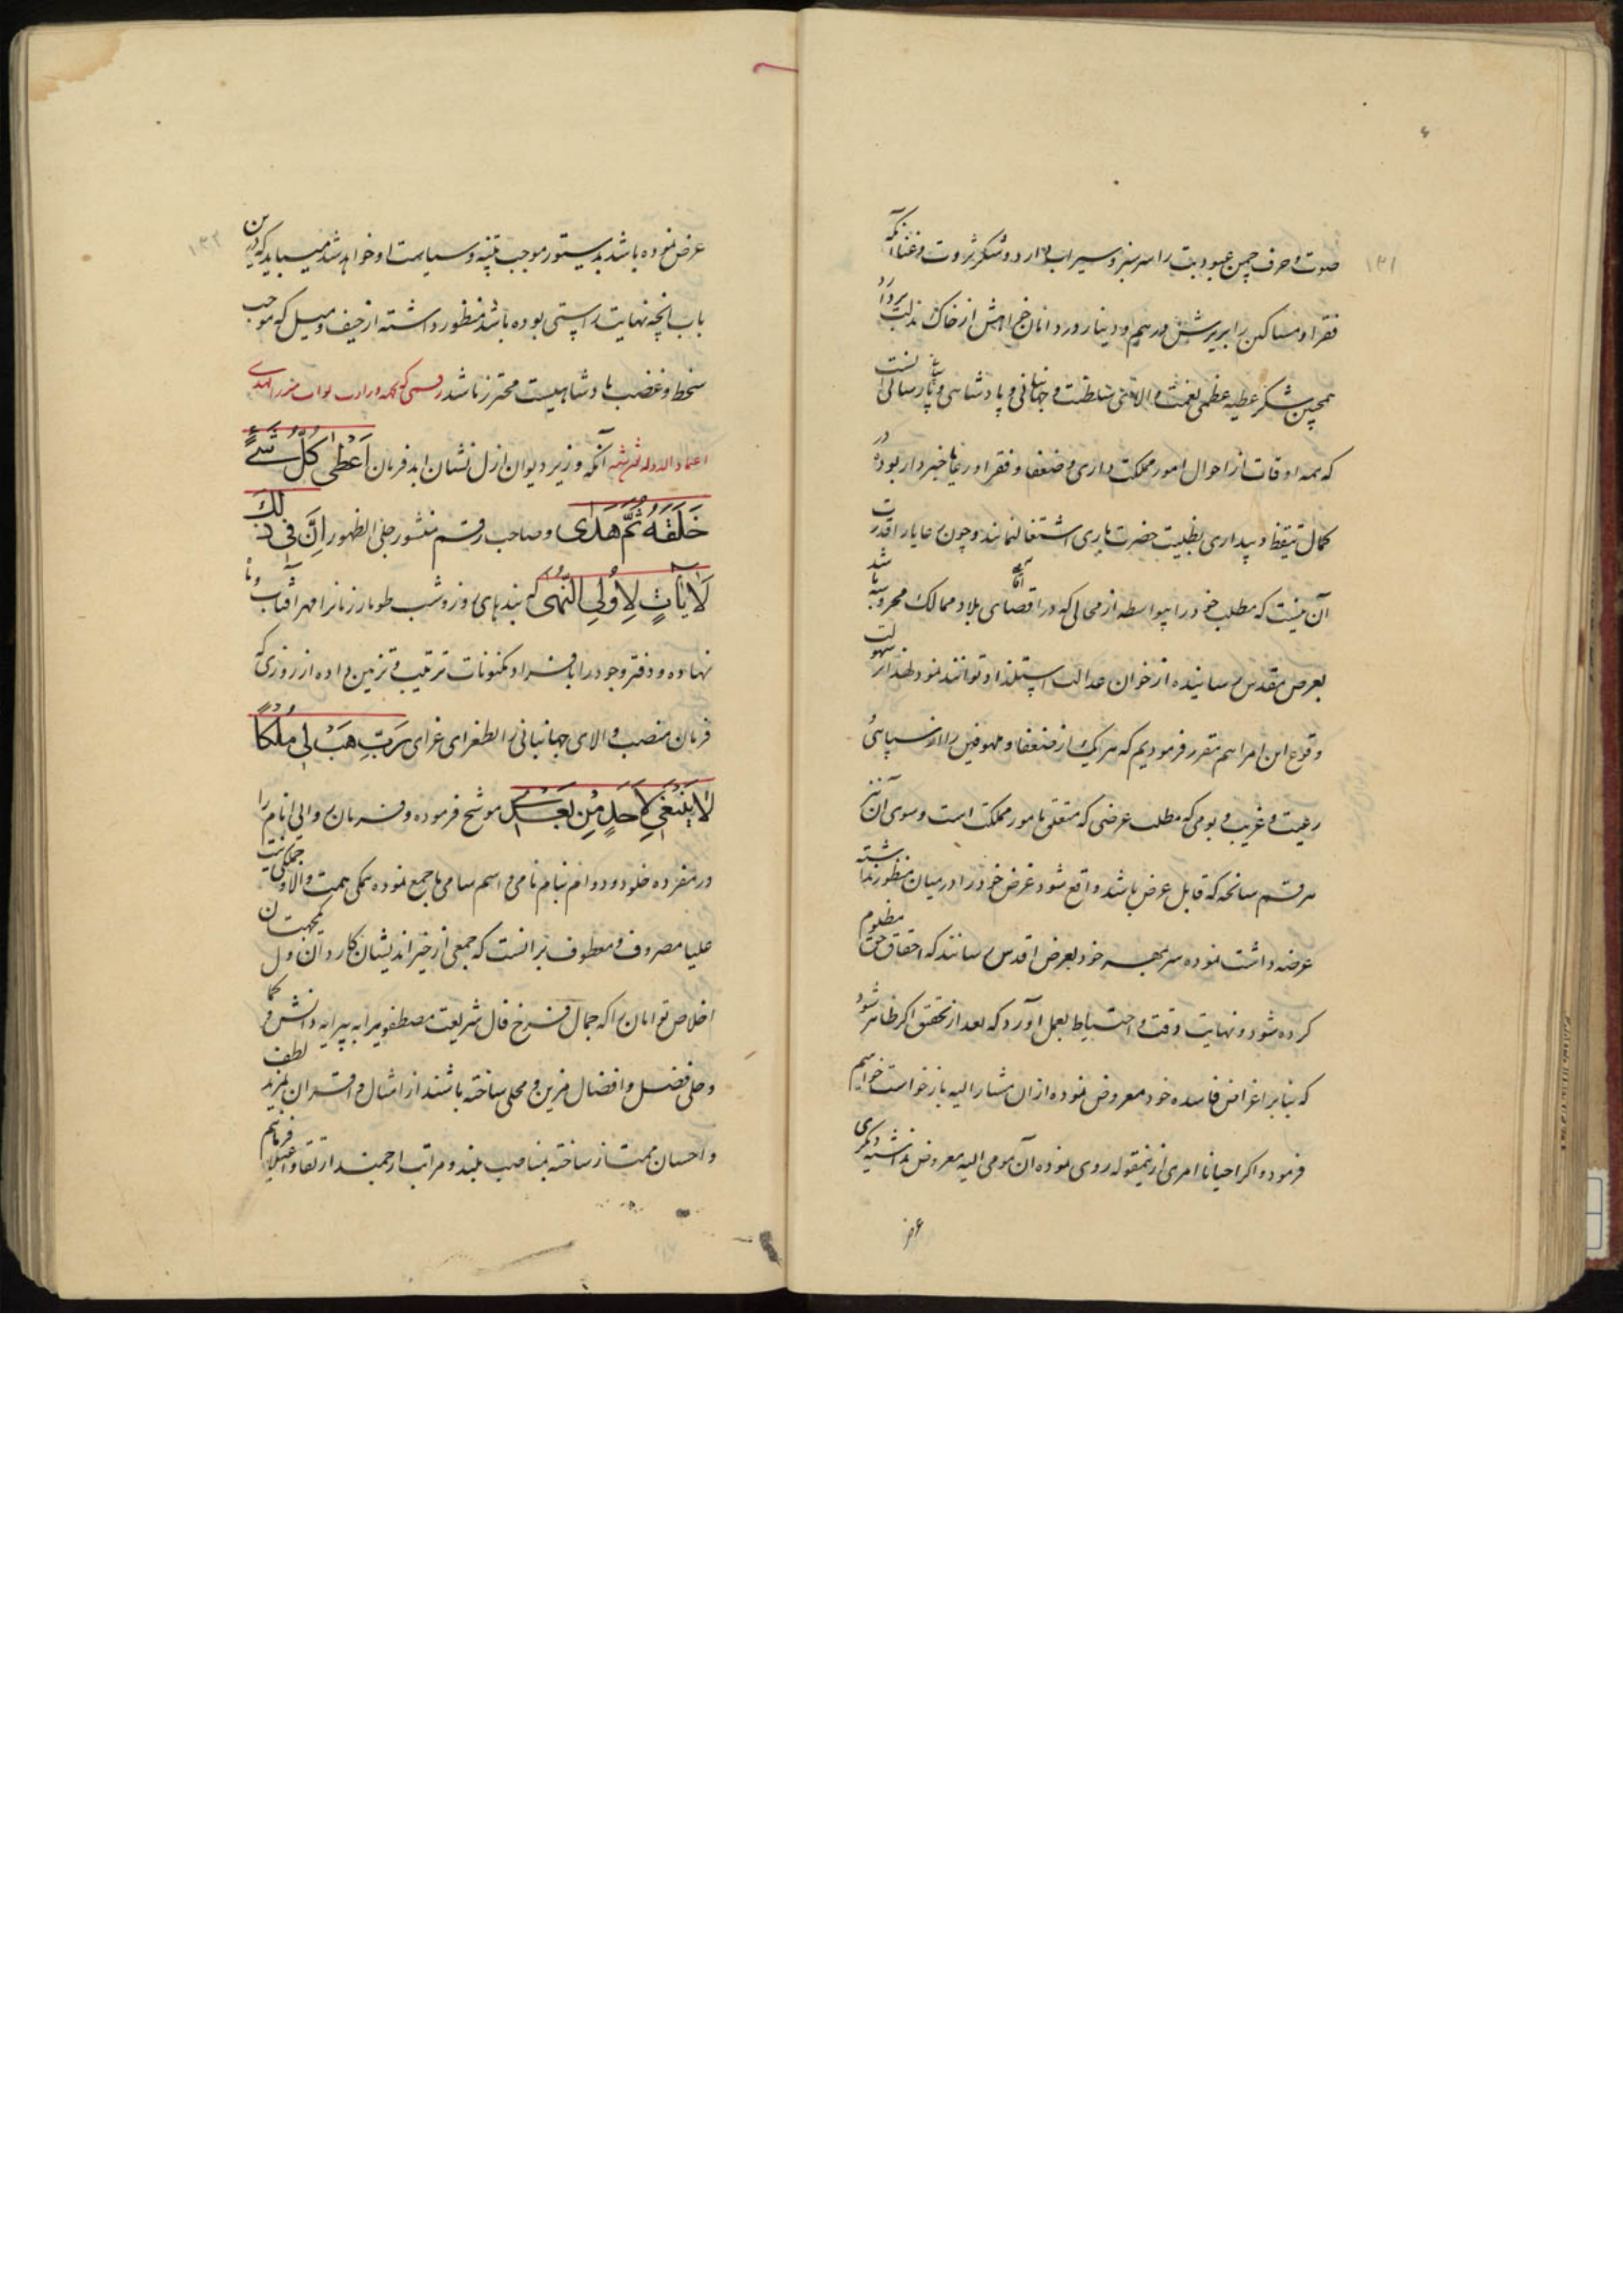 ۱۳۱
صوت و حرف چمن عبودیت را سرسبز و سیراب دارد و شکر ثروت و غنا آنکه
فقرا و مساکین را بریزش درهم و دینار و ردامان خواهش از خاک مذلت بردارد
همچنین شکر عطیه عظمی نعمت والا سلطنت و جهانبانی و پادشاهی و پارسائی آنست
که همه اوقات از احوال امور مملکت داری و ضعفا و فقرا و رعایا خبردار بوده در
کمال تیقظ و بیداری بطلبیت حضرت باری اشتغال نمایند و چون رعایا را قدرت
آن نیست که مطلب خود را بیواسطه از محالی که در اقصای بلاد ممالک محروسه باشد
بعرض مقدس رسانیده از خوان عدالت استلذاذ توانند نمود لهذا از سهولت
وقوع این امر اهم مقرر فرمودیم که هر یک از ضعفا و ملهوفین را از سپاهی
رعیت و غریب و بومی که مطلب عرضی که متعلق بامور مملکت است و سوی آن نیز
هر قسم سانحه که قابل عرض باشد واقع شود غرض خود را در میان منظور نداشته
عرضه داشت نموده سر بمهر خود بعرض اقدس رسانند که احقاق حق مظلوم
کرده شود و نهایت دقت و احتیاط بعمل آورد که بعد از تحقق اگر ظاهر شود
که بنابر اغراض فاسده خود معروض نموده از ان مشار الیه بازخواست خواهیم
فرمود و اگر احیانا امری ازینمقوله روی نموده آن مومی الیه معروض نداشته دیگری
عرض
۱۳۲
عرض نموده باشد بدستور موجب تنبیه و سیاست او خواهد شد میباید که درین
باب آنچه نهایت راستی بوده باشد منظور داشته از حیف و میل که موجب
سخط و غضب پادشاهیست محترز باشد رقمی که بجهه وزارت نواب میرزا مهدی
اعتماد الدوله نوشته آنکه وزیر دیوان ازل نشان ابد فرمان اَعْطٰی کُلَّ شَیْءٍ
خَلَقَهُ ثُمَّ هَدٰی و صاحب رقم منشور جلی الظهور اِنَّ فِی ذٰلِکَ
لَاٰیاتٍ لِاُولِی النُّهٰی که بندهای روز و شب طومار زمانرا مهر آفتاب و ماه
نهاده و دفتر وجود را بافراد مکنونات ترتیب و تزیین داده از روزی که
فرمان منصب والای جهانبانی را بطغرای غرای رَبِّ هَبْ لِی مُلْکًا
لَا یَنْبَغِی لِاَحَدٍ مِنْ بَعْدِی موشح فرموده و فرمان والی انام را
در مفرده خلود و دوام بنام نامی و اسم سامی ما جمع نموده همگی همت والا و جملگی نیت
علیا مصروف و معطوف برانست که جمعی از خیر اندیشان کاردان و یکجهتان
اخلاص توامان را که جمال فرخ فال شریعت مصطفویرا به پیرایه دانش و کمال
و حلی فضل و افضال مزین و محلی ساخته باشند از امثال و اقران بمزید لطف
و احسان ممتاز ساخته بمناصب بلند و مراتب ارجمند ارتقا و اعتلا فرمائیم